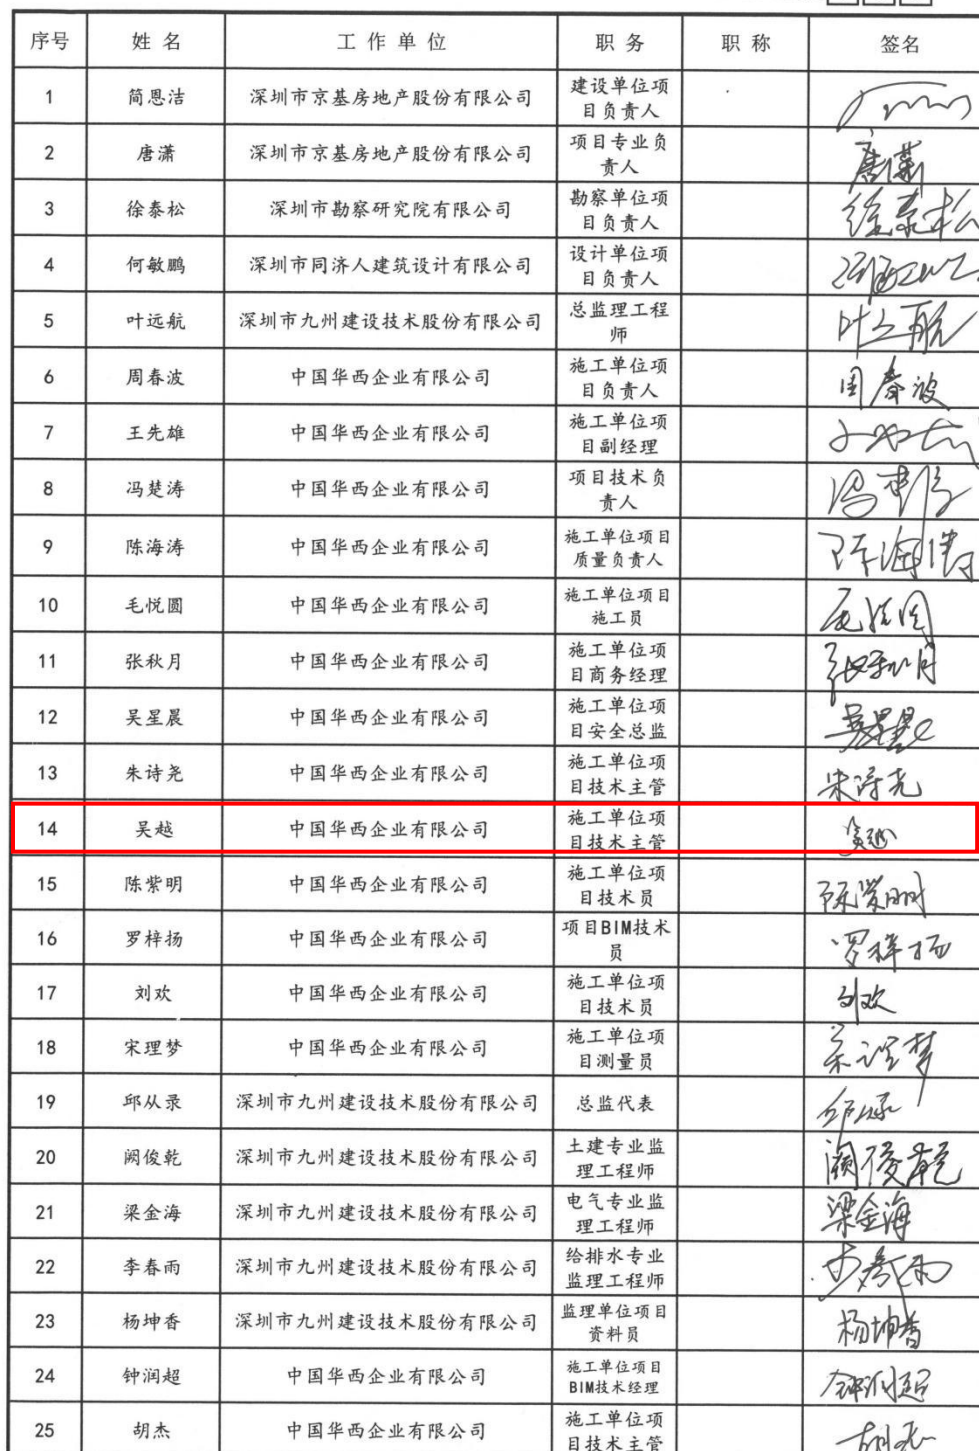 序号 姓名 工作单位 职务 职称 签名
1 简恩洁 深圳市京基房地产股份有限公司 建设单位项
目负责人
2 唐潇 深圳市京基房地产股份有限公司 项目专业负
责人 唐潇
3 徐泰松 深圳市勘察研究院有限公司 勘察单位项
目负责人 徐泰松
4 何敏鹏 深圳市同济人建筑设计有限公司 设计单位项
目负责人
5 叶远航 深圳市九州建设技术股份有限公司 总监理工程
师 叶远航
6 周春波 中国华西企业有限公司 施工单位项
目负责人 周春波
7 王先雄 中国华西企业有限公司 施工单位项
目副经理
8 冯楚涛 中国华西企业有限公司 项目技术负
责人
9 陈海涛 中国华西企业有限公司 施工单位项目
质量负责人 陈海涛
10 毛悦圆 中国华西企业有限公司 施工单位项目
施工员 毛悦圆
11 张秋月 中国华西企业有限公司 施工单位项
目商务经理 张秋月
12 吴星晨 中国华西企业有限公司 施工单位项
目安全总监 吴星晨
13 朱诗尧 中国华西企业有限公司 施工单位项
目技术主管 朱诗尧
14 吴越 中国华西企业有限公司 施工单位项
目技术主管 吴越
15 陈紫明 中国华西企业有限公司 施工单位项
目技术员 陈紫明
16 罗梓扬 中国华西企业有限公司 项目BIM技术
员 罗梓扬
17 刘欢 中国华西企业有限公司 施工单位项
目技术员 刘欢
18 宋理梦 中国华西企业有限公司 施工单位项
目测量员 宋理梦
19 邱从录 深圳市九州建设技术股份有限公司 总监代表
20 阙俊乾 深圳市九州建设技术股份有限公司 土建专业监
理工程师 阙俊乾
21 梁金海 深圳市九州建设技术股份有限公司 电气专业监
理工程师 梁金海
22 李春雨 深圳市九州建设技术股份有限公司 给排水专业
监理工程师 李春雨
23 杨坤香 深圳市九州建设技术股份有限公司 监理单位项目
资料员 杨坤香
24 钟润超 中国华西企业有限公司 施工单位项目
BIM技术经理 钟润超
25 胡杰 中国华西企业有限公司 施工单位项
目技术主管 胡杰